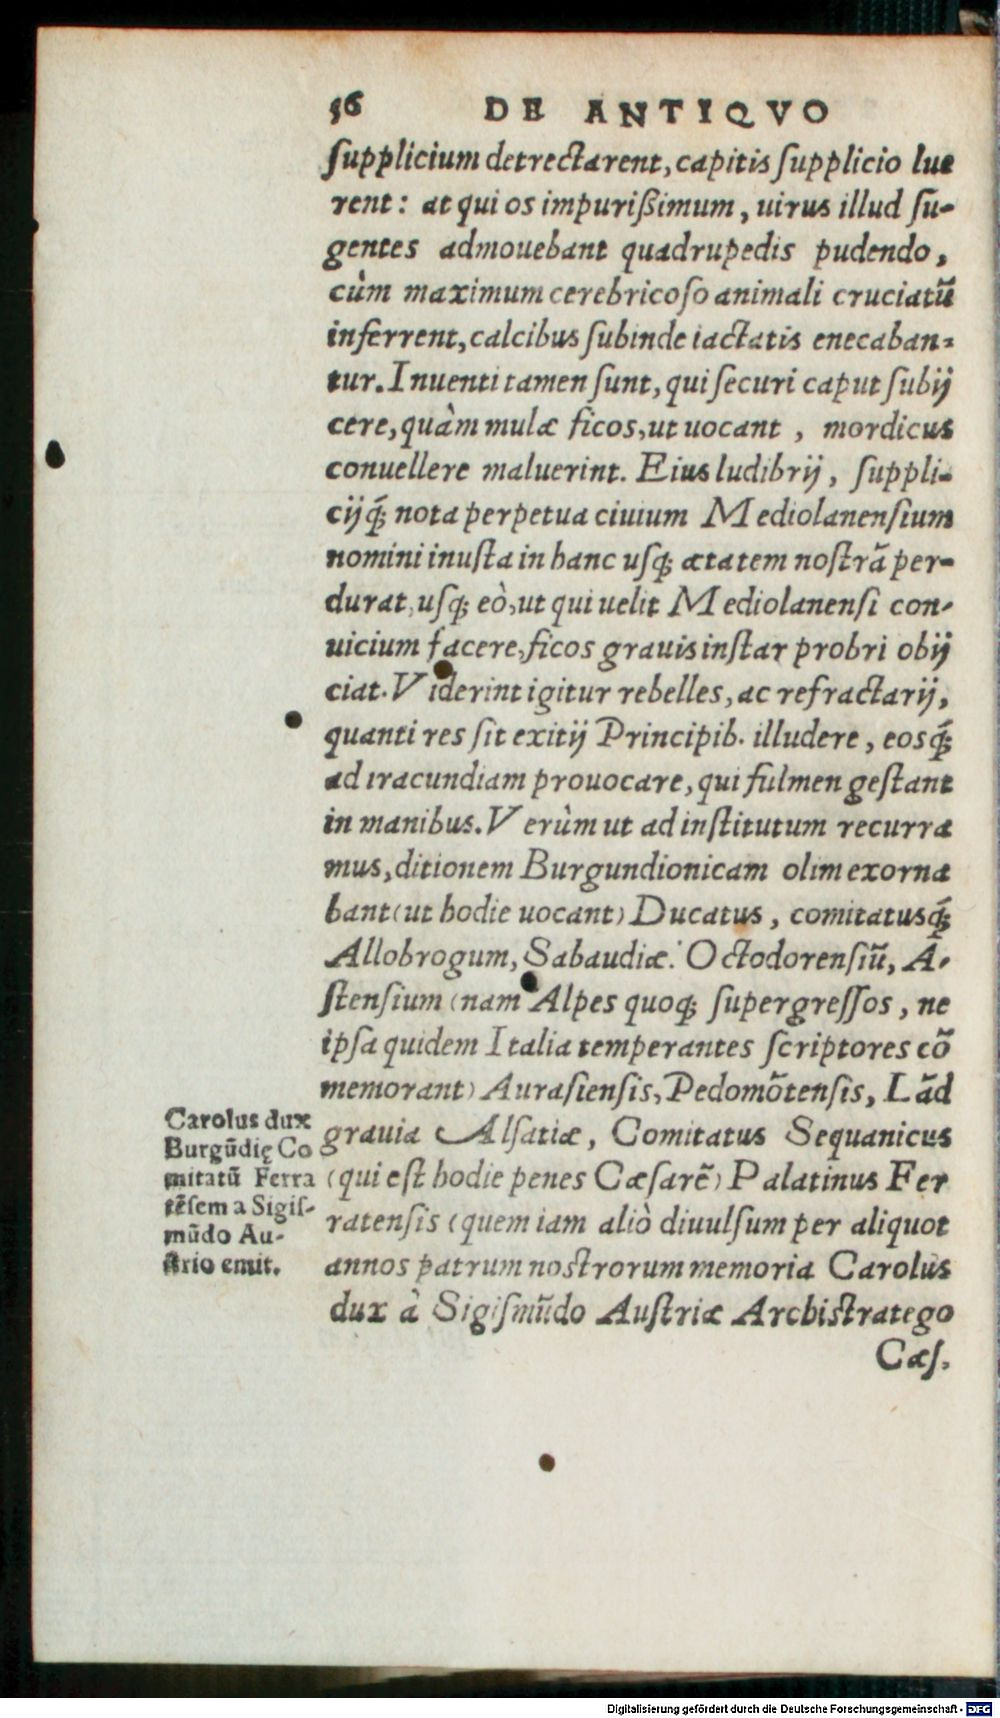 56 DE ANTIQVO
ſupplicium detrectarent, capitis ſupplicio lue
rent: at qui os impurißimum, uirus illud ſu-
gentes admouebant quadrupedis pudendo,
cùm maximum cerebricoſo animali cruciatū
inferrent, calcibus ſubinde iactatis enecaban-
tur. Inuenti tamen ſunt, qui ſecuri caput ſubij
cere, quàm mulæ ficos, ut uocant, mordicus
conuellere maluerint. Eius ludibrij, ſuppli-
cijq́; nota perpetua ciuium Mediolanenſium
nomini inuſta in hanc uſq; ætatem noſtrā per-
durat, uſq; eò, ut qui uelit Mediolanenſi con-
uicium facere, ficos grauis inſtar probri obij
ciat. Viderint igitur rebelles, ac refractarij,
quanti res ſit exitij Principib. illudere, eosq́;
ad iracundiam prouocare, qui fulmen geſtant
in manibus. Verùm ut ad inſtitutum recurra
mus, ditionem Burgundionicam olim exorna
bant (ut hodie uocant) Ducatus, comitatusq́;
Allobrogum, Sabaudiæ. Octodorenſiū, A-
ſtenſium (nam Alpes quoq; ſupergreſſos, ne
ipſa quidem Italia temperantes ſcriptores cō
memorant) Auraſienſis, Pedomōtenſis, Lād
grauia Alſatiæ, Comitatus Sequanicus
(qui eſt hodie penes Cæſarē) Palatinus Fer
ratenſis (quem iam aliò diuulſum per aliquot
annos patrum noſtrorum memoria Carolus
dux à Sigiſmūdo Auſtriæ Archiſtratego
Cæſ.
Carolus dux
Burgūdię Co
mitatū Ferra
tēſem a Sigiſ-
mūdo Au-
ſtrio emit.
Digitalisierung gefördert durch die Deutsche Forschungsgemeinschaft - DFG